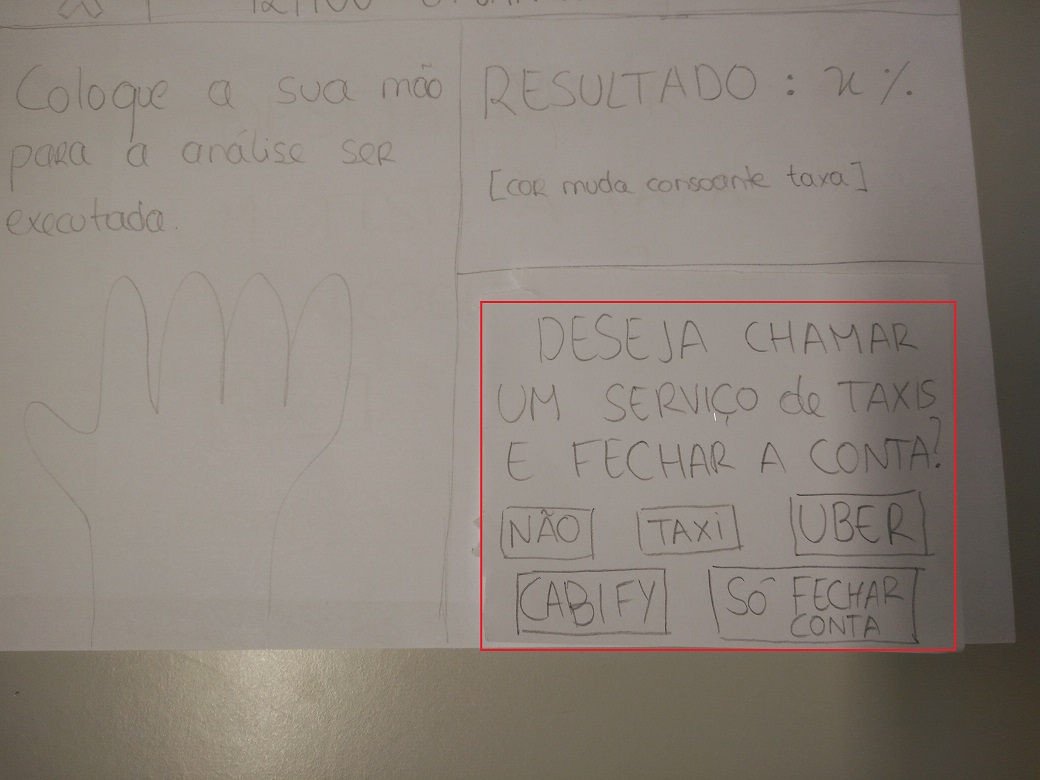 Coloque a sua mão
para a análise ser
executada.
RESULTADO : x %
[cor muda consoante taxa]
DESEJA CHAMAR
UM SERVIÇO de TAXIS
E FECHAR A CONTA?
NÃO TAXi UBER
CABIFY SÓ FECHAR
CONTA